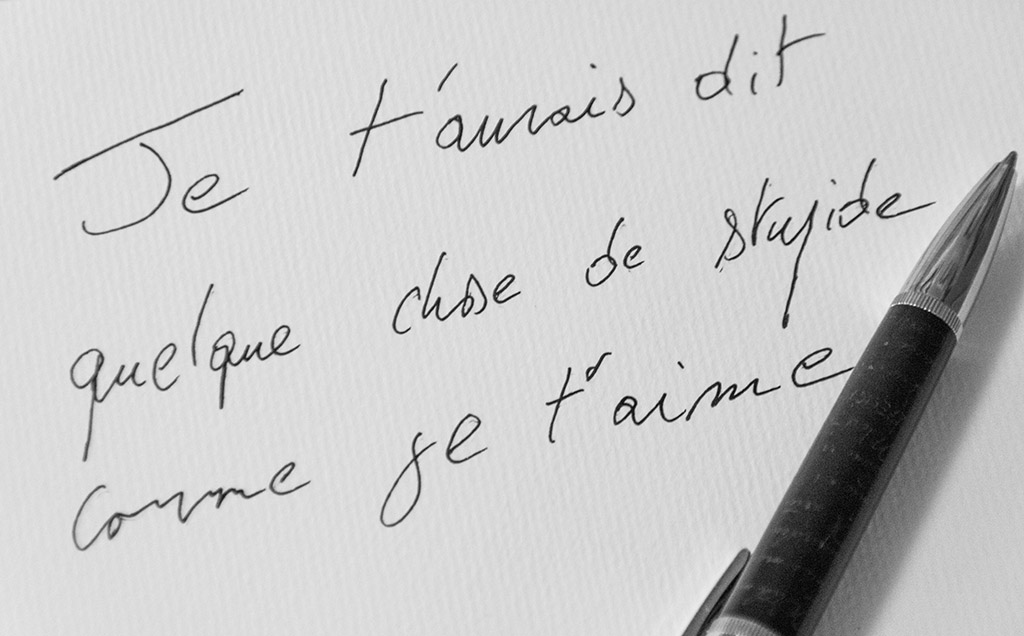 Je t'aurais dit
quelque chose de stupide
comme je t'aime